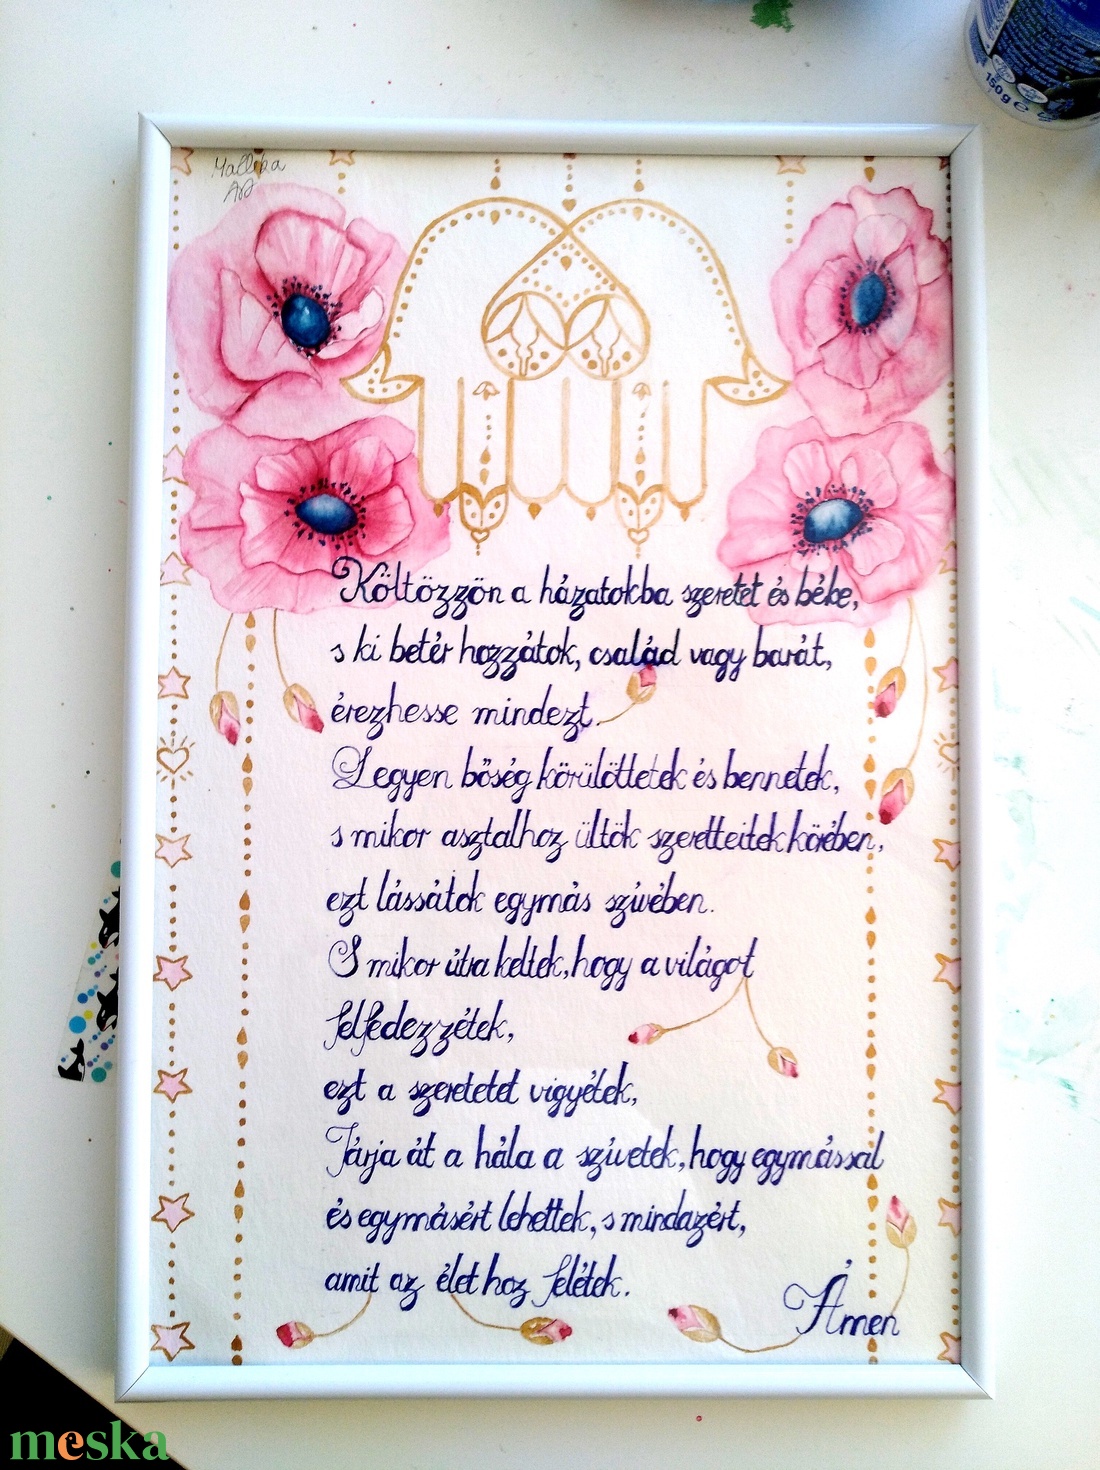 Mallika
Art
150g e
Költözzön a házatokba szeretet és béke,
s ki betér hozzátok, család vagy barát,
érezhesse mindezt.
Legyen bőség körülöttetek és bennetek,
s mikor asztalhoz ültök szeretteitek körében,
ezt lássátok egymás szívében.
S mikor útra keltek, hogy a világot
felfedezzétek,
ezt a szeretetet vigyétek,
Járja át a hála a szívetek, hogy egymással
és egymásért lehettek, s mindazért,
amit az élet hoz felétek.
Ámen
meska